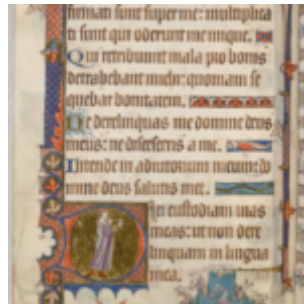 firmati sunt super me: multiplica
ti sunt qui oderunt me inique.
Qui retribuunt mala pro bonis
detrahebant michi: quoniam se
quebar bonitatem.
Ne derelinquas me domine deus
meus: ne discesseris a me.
Intende in adiutorium meum: do
mine deus salutis mee.
ixi custodiam uias
meas: ut non dere
linquam in lingua
mea.